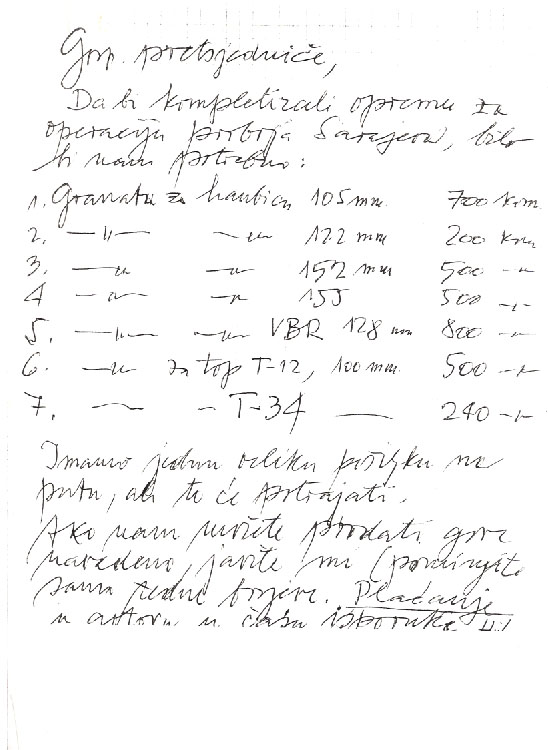 Gosp. pretsjedniče,
Da bi kompletirali opremu za
operaciju proboja Sarajeva, bilo
bi nam potrebno:
1. Granata za haubicu 105 mm. 700 kom.
2. —〃— —〃— 122 mm 200 kom
3. —〃— —〃— 152 mm 500 —〃—
4 —〃— —〃— 155 500 —〃—
5. —〃— —〃— VBR 128 mm 800 —〃—
6. —〃— za top T-12, 100 mm. 500 —〃—
7. —〃— — T-34 — 240 —〃—
Imamo jednu veliku pošiljku na
putu, ali to će potrajati.
Ako nam možete prodati gore
navedeno, javite mi
samo redne brojeve. Plaćanje
u gotovu u času isporuke !!!